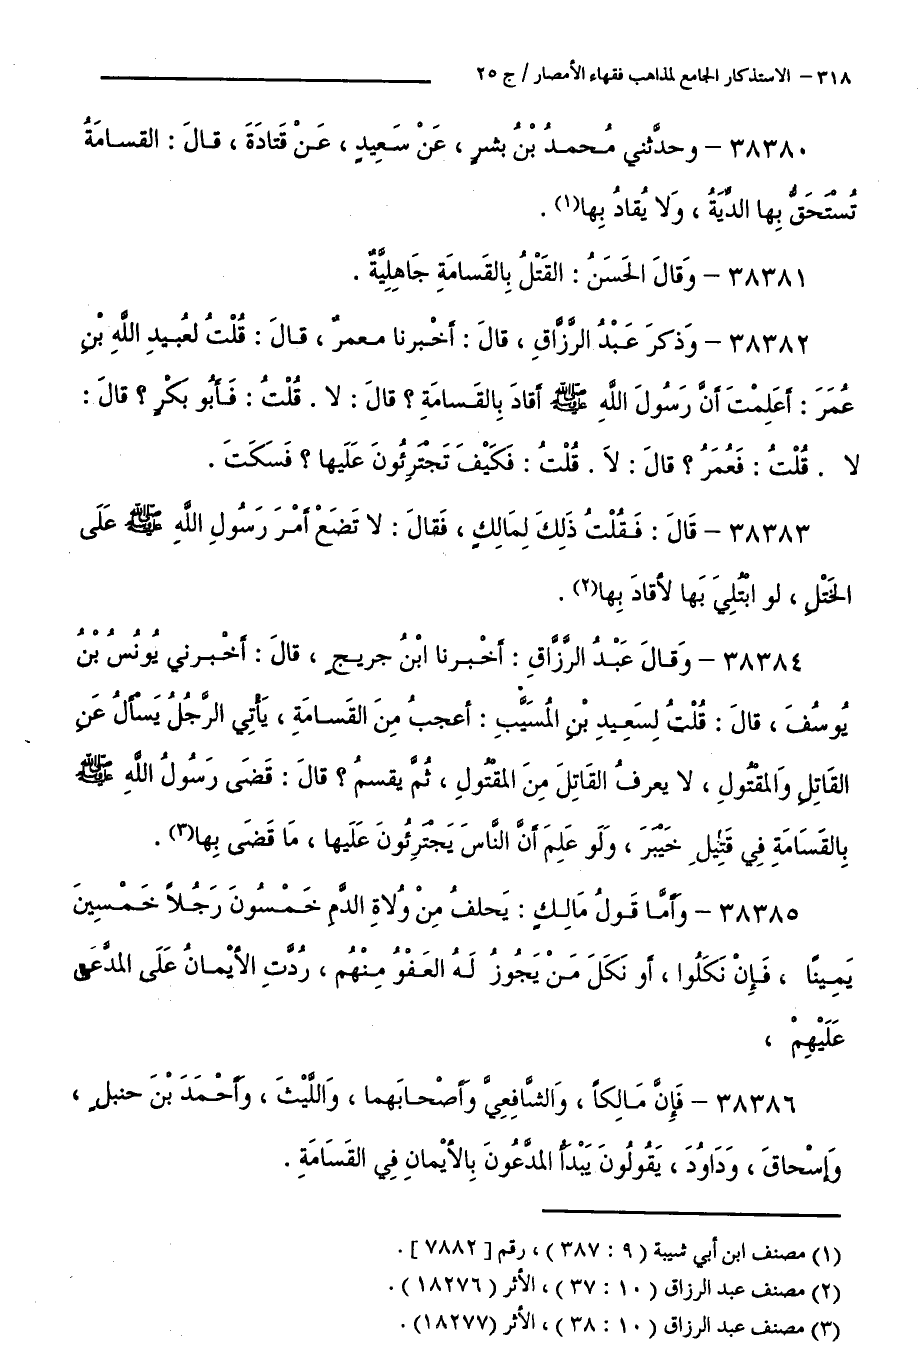 ٣١٨ – الاستذكار الجامع لمذاهب فقهاء الأمصار / ج ٢٥
٣٨٣٨٠ – وحدثني محمدُ بْنُ بشرٍ ، عَنْ سَعِيدٍ ، عَنْ قَتَادَةَ ، قالَ : القسامَةُ
تُسْتَحَقُّ بِها الدِّيَةُ ، وَلا يُقادُ بِها(١) .
٣٨٣٨١ – وَقالَ الحَسَنُ : القَتْلُ بِالقَسامَةِ جَاهِلِيَّةٌ .
٣٨٣٨٢ – وَذكرَ عَبْدُ الرَّزَّاقِ ، قالَ : أخْبرنا معمرٌ ، قالَ : قُلْتُ لعُبيدِ اللَّهِ بْنِ
عُمَرَ : أعَلِمْتَ أنَّ رَسُولَ اللَّهِ ﷺ أقادَ بِالقَسامَةِ ؟ قالَ : لا . قُلْتُ : فَأبُو بَكْرٍ ؟ قالَ :
لا . قُلْتُ : فَعُمَرُ ؟ قالَ : لاَ . قُلْتُ : فَكَيْفَ تَجْتَرِئُونَ عَلَيها ؟ فَسَكَتَ .
٣٨٣٨٣ – قَالَ : فَقُلْتُ ذَلِكَ لِمَالِكٍ ، فَقالَ : لا تَضَعْ أمْرَ رَسُولِ اللَّهِ ﷺ عَلَى
الخَتْلِ ، لو ابْتُلِيَ بَها لأقادَ بِها(٢) .
٣٨٣٨٤ – وَقالَ عَبْدُ الرَّزَّاقِ : أخْبرنا ابْنُ جريجٍ ، قالَ : أخْبرني يُونُسُ بْنُ
يُوسُفَ ، قالَ : قُلْتُ لِسَعِيدِ بْنِ المُسَيَّبِ : أعجبُ مِنَ القَسامَةِ ، يَأْتِي الرَّجُلُ يَسْألُ عَنِ
القَاتِلِ وَالمَقْتُولِ ، لا يعرفُ القَاتِلَ مِنَ المَقْتُولِ ، ثُمَّ يقسمُ ؟ قالَ : قَضَى رَسُولُ اللَّهِ ﷺ
بِالقَسَامَةِ فِي قَتِيلِ خَيْبَرَ ، ولَو عَلِمَ أنَّ النَّاسَ يَجْتَرِئُونَ عَلَيها ، مَا قَضَى بِها(٣) .
٣٨٣٨٥ – وَأمَّا قَولُ مَالِكٍ : يَحلفُ مِنْ وُلاةِ الدَّمِ خَمْسُونَ رَجُلاً خَمْسِينَ
يَمِينًا ، فَإنْ نَكَلُوا ، أو نَكَلَ مَنْ يَجُوزُ لَهُ العَفْوُ مِنْهُم ، رُدَّتِ الأيْمانُ عَلَى المدَّعَى
عَلَيْهِمْ ،
٣٨٣٨٦ – فَإنَّ مَالِكاً ، وَالشَّافِعِيَّ وَأصْحابَهما ، وَاللَّيْثَ ، وَأحْمَدَ بْنَ حنبلٍ ،
وَإسْحاقَ ، ودَاوُدَ ، يَقُولُونَ يَبْدَأُ المدَّعُونَ بِالأيْمانِ فِي القَسَامَةِ .
(١) مصنف ابن أبي شيبة ( ٩ : ٣٨٧ ) ، رقم [ ٧٨٨٢ ] .
(٢) مصنف عبد الرزاق ( ١٠ : ٣٧ ) ، الأثر ( ١٨٢٧٦ ) .
(٣) مصنف عبد الرزاق ( ١٠ : ٣٨ ) ، الأثر (١٨٢٧٧) .